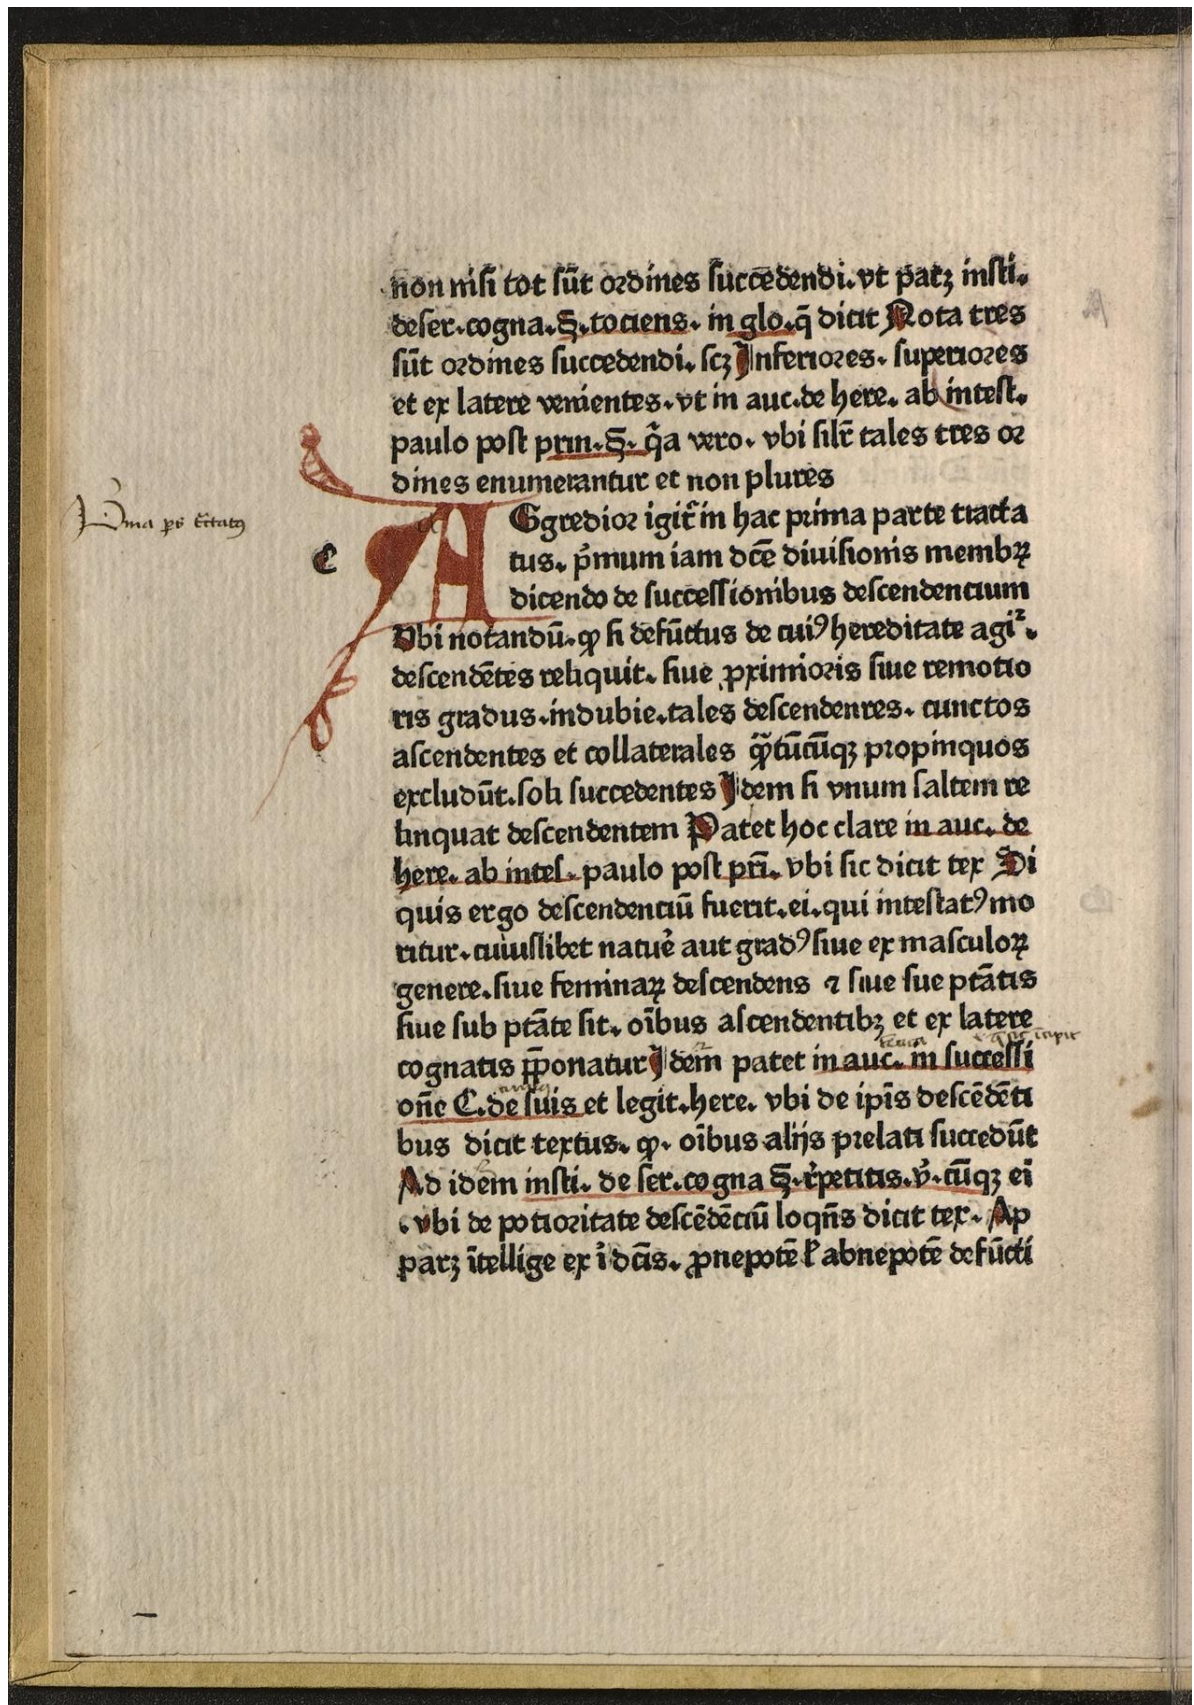 non nisi tot sūt ordines succedendi. vt patꝫ insti.
de ser. cogna. §. tociens. in glo. q̄ dicit Nota tres
sūt ordines succedendi. scꝫ Inferiores. superiores
et ex latere venientes. vt in auc. de here. ab intest.
paulo post prin. §. q̄a vero. vbi silr̄ tales tres or
dines enumerantur et non plures
p̄ma ps
AGgredior igit̄ in hac prima parte tracta
C
tus. p̄mum iam dc̄e diuisionis membrꝝ
dicendo de successionibus descendencium
Vbi notandū. ꝙ si defūctus de cuiꝰ hereditate agiᷣ.
descendētes reliquit. siue ꝓximioris siue remotio
ris gradus. indubie. tales descendentes. cunctos
ascendentes et collaterales qᷓ̄tūcūqꝫ propinquos
excludūt. soli succedentes Idem si vnum saltem re
linquat descendentem Patet hoc clare in auc. de
here. ab intes. paulo post pri̅. vbi sic dicit tex Si
quis ergo descendenciū fuerit. ei. qui intestatꝰ mo
ritur. cuiuslibet natue̾ aut gradꝰ siue ex masculoꝝ
genere. siue feminaꝝ descendens ⁊ siue sue ptātis
siue sub ptāte sit. oībus ascendentibꝫ et ex latere
cognatis p̄ponatur Idem patet in auc. in successi
on̄e C. de suis et legit. here. vbi de ipīs descēdēti
bus dicit textus. ꝙ. oībus alijs prelati succedūt
Ad idem insti. de ser. cogna §. r̾petitis. v̾. cūqꝫ ei
. vbi de potioritate descēdēciū loqn̄s dicit tex. Ap
parꝫ ītellige ex i̾ dc̄is. ꝓnepotē ł abnepotē defūcti